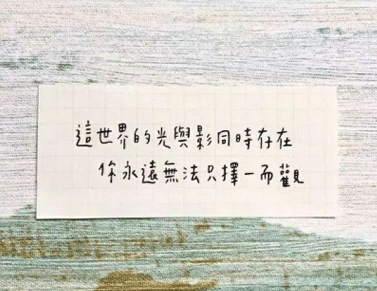 這世界的光與影同時存在
你永遠無法只擇一而觀